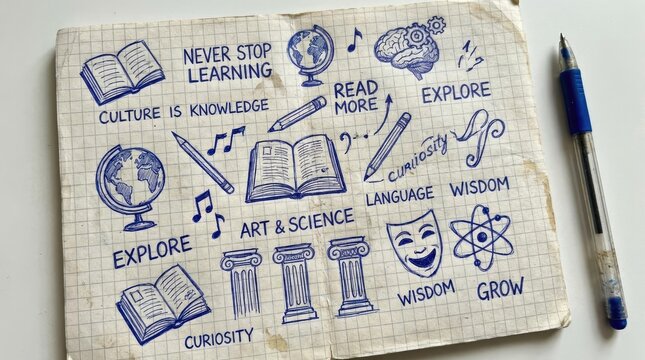 NEVER STOP
LEARNING
CULTURE IS KNOWLEDGE
READ
MORE
EXPLORE
CURIOSITY
LANGUAGE
WISDOM
EXPLORE
ART & SCIENCE
WISDOM
GROW
CURIOSITY